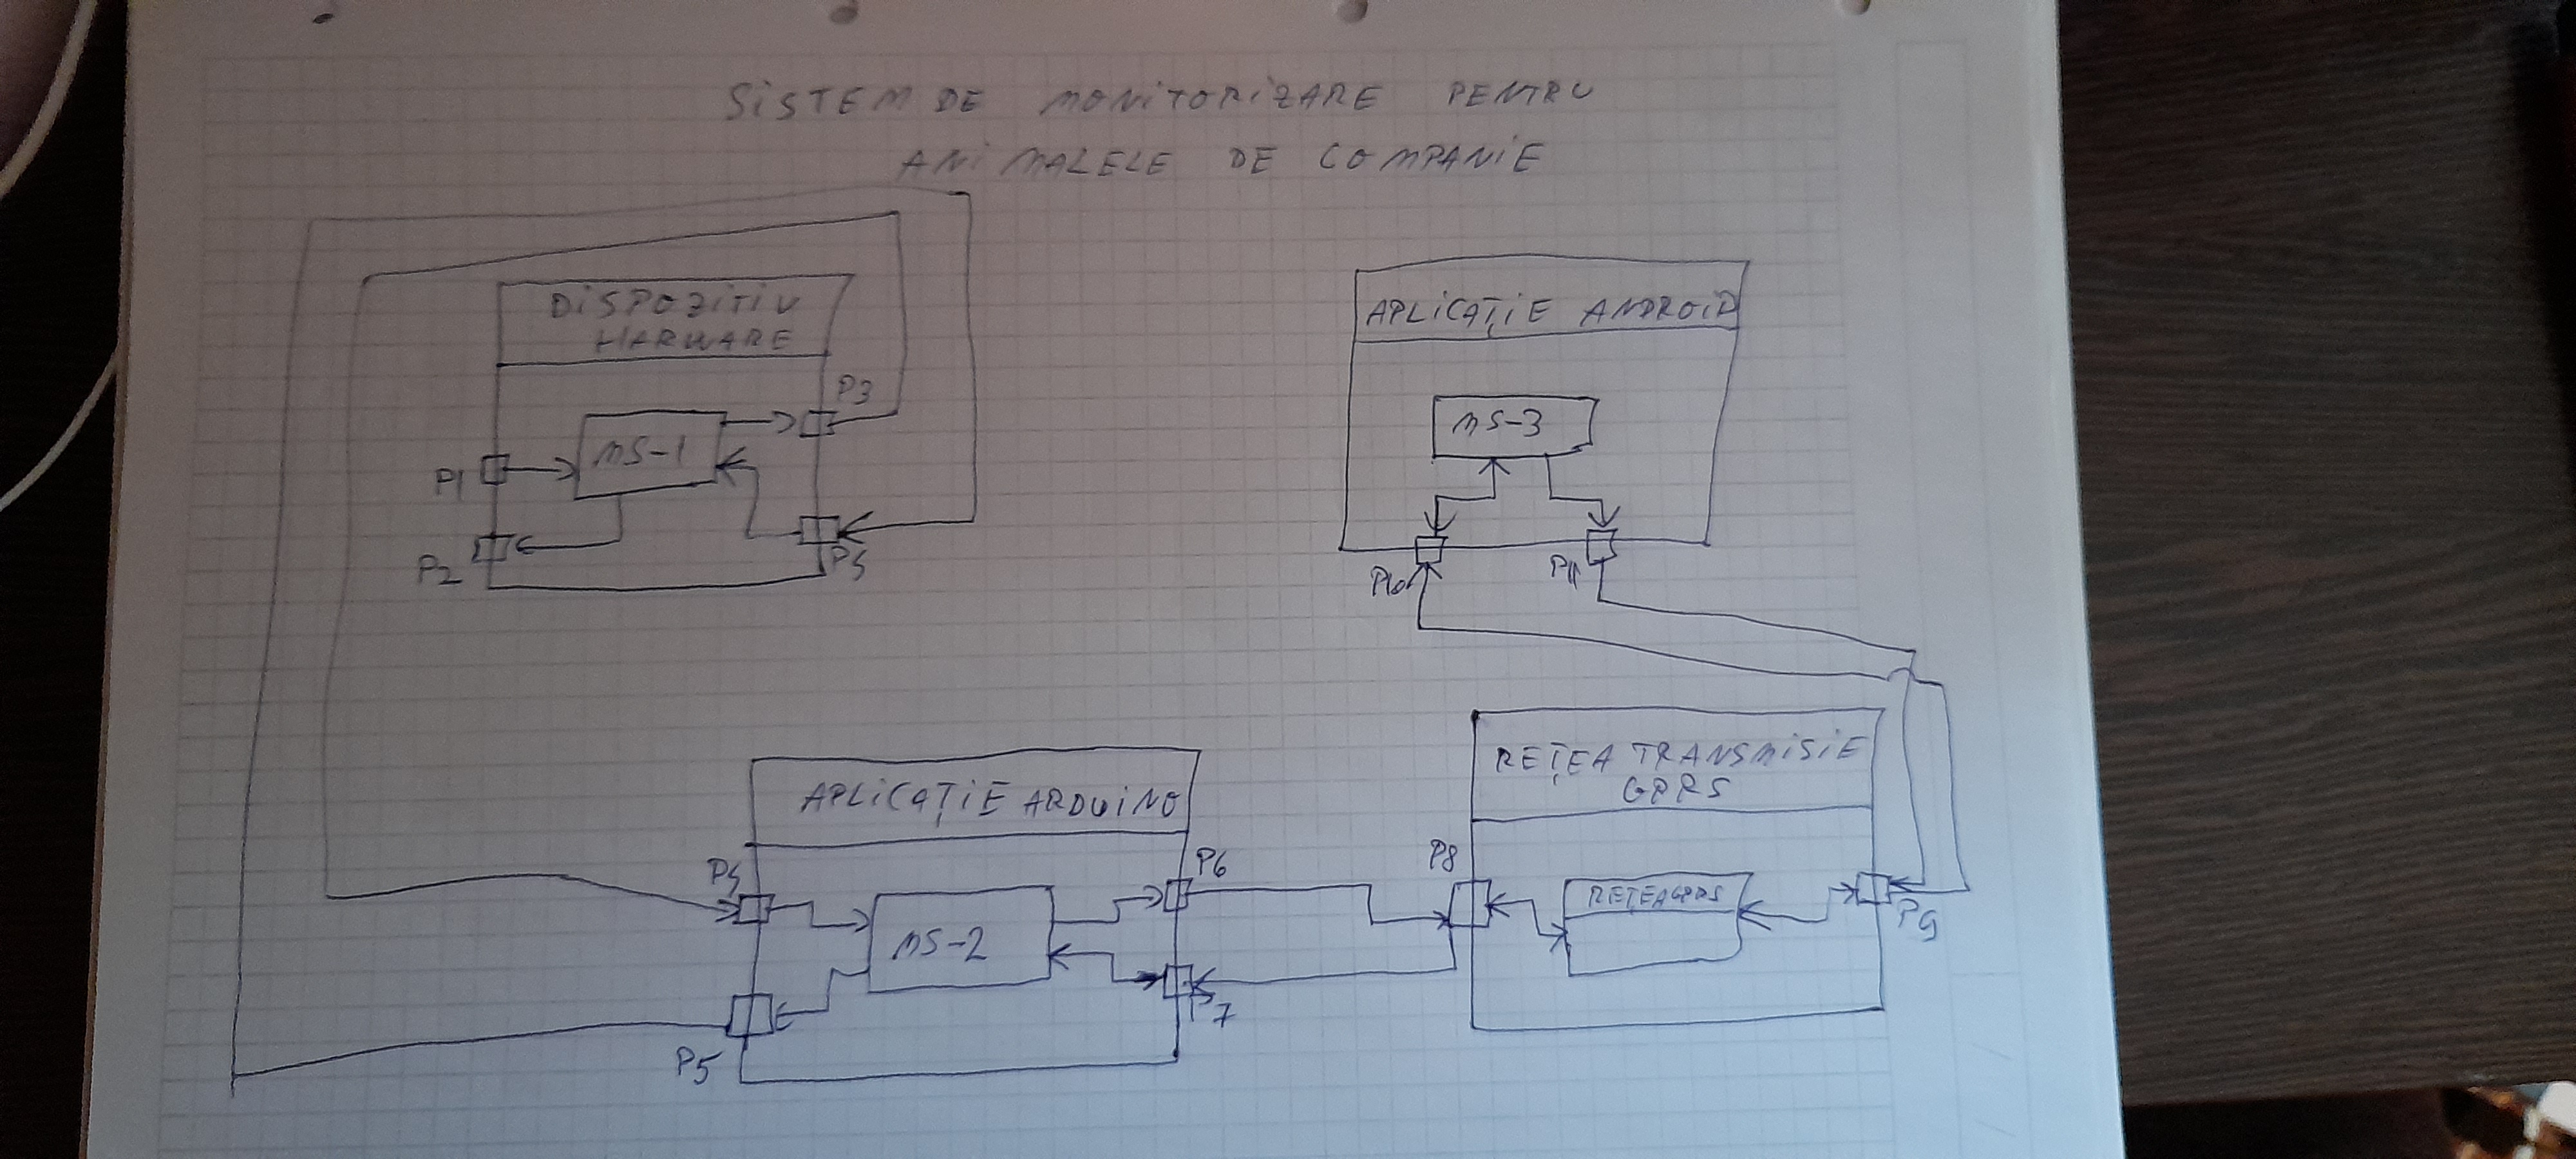 SISTEM DE MONITORIZARE PENTRU
ANIMALELE DE COMPANIE
DISPOZITIV
HARWARE
P3
MS-1
P1
P2
P5
APLICAȚIE ANDROID
MS-3
P10
P11
APLICAȚIE ARDUINO
P4
P6
MS-2
P7
P5
REȚEA TRANSMISIE
GPRS
P8
REȚEAGPRS
P9